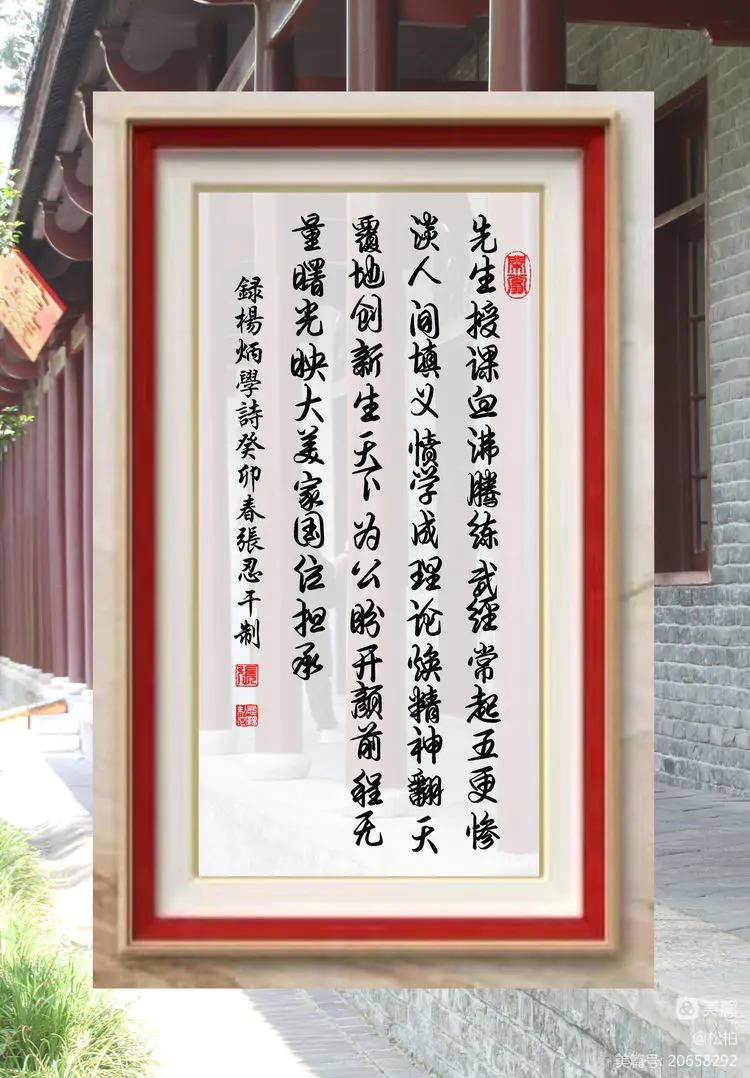 先生授课血沸腾练武经常起五更惨
淡人间填义愤学成理论焕精神翻天
覆地创新生天下为公盼开颜前程无
量曙光映大美家国位担承
録楊炳學詩癸卯春張忍干制
美篇
@松柏
美篇号: 20658292